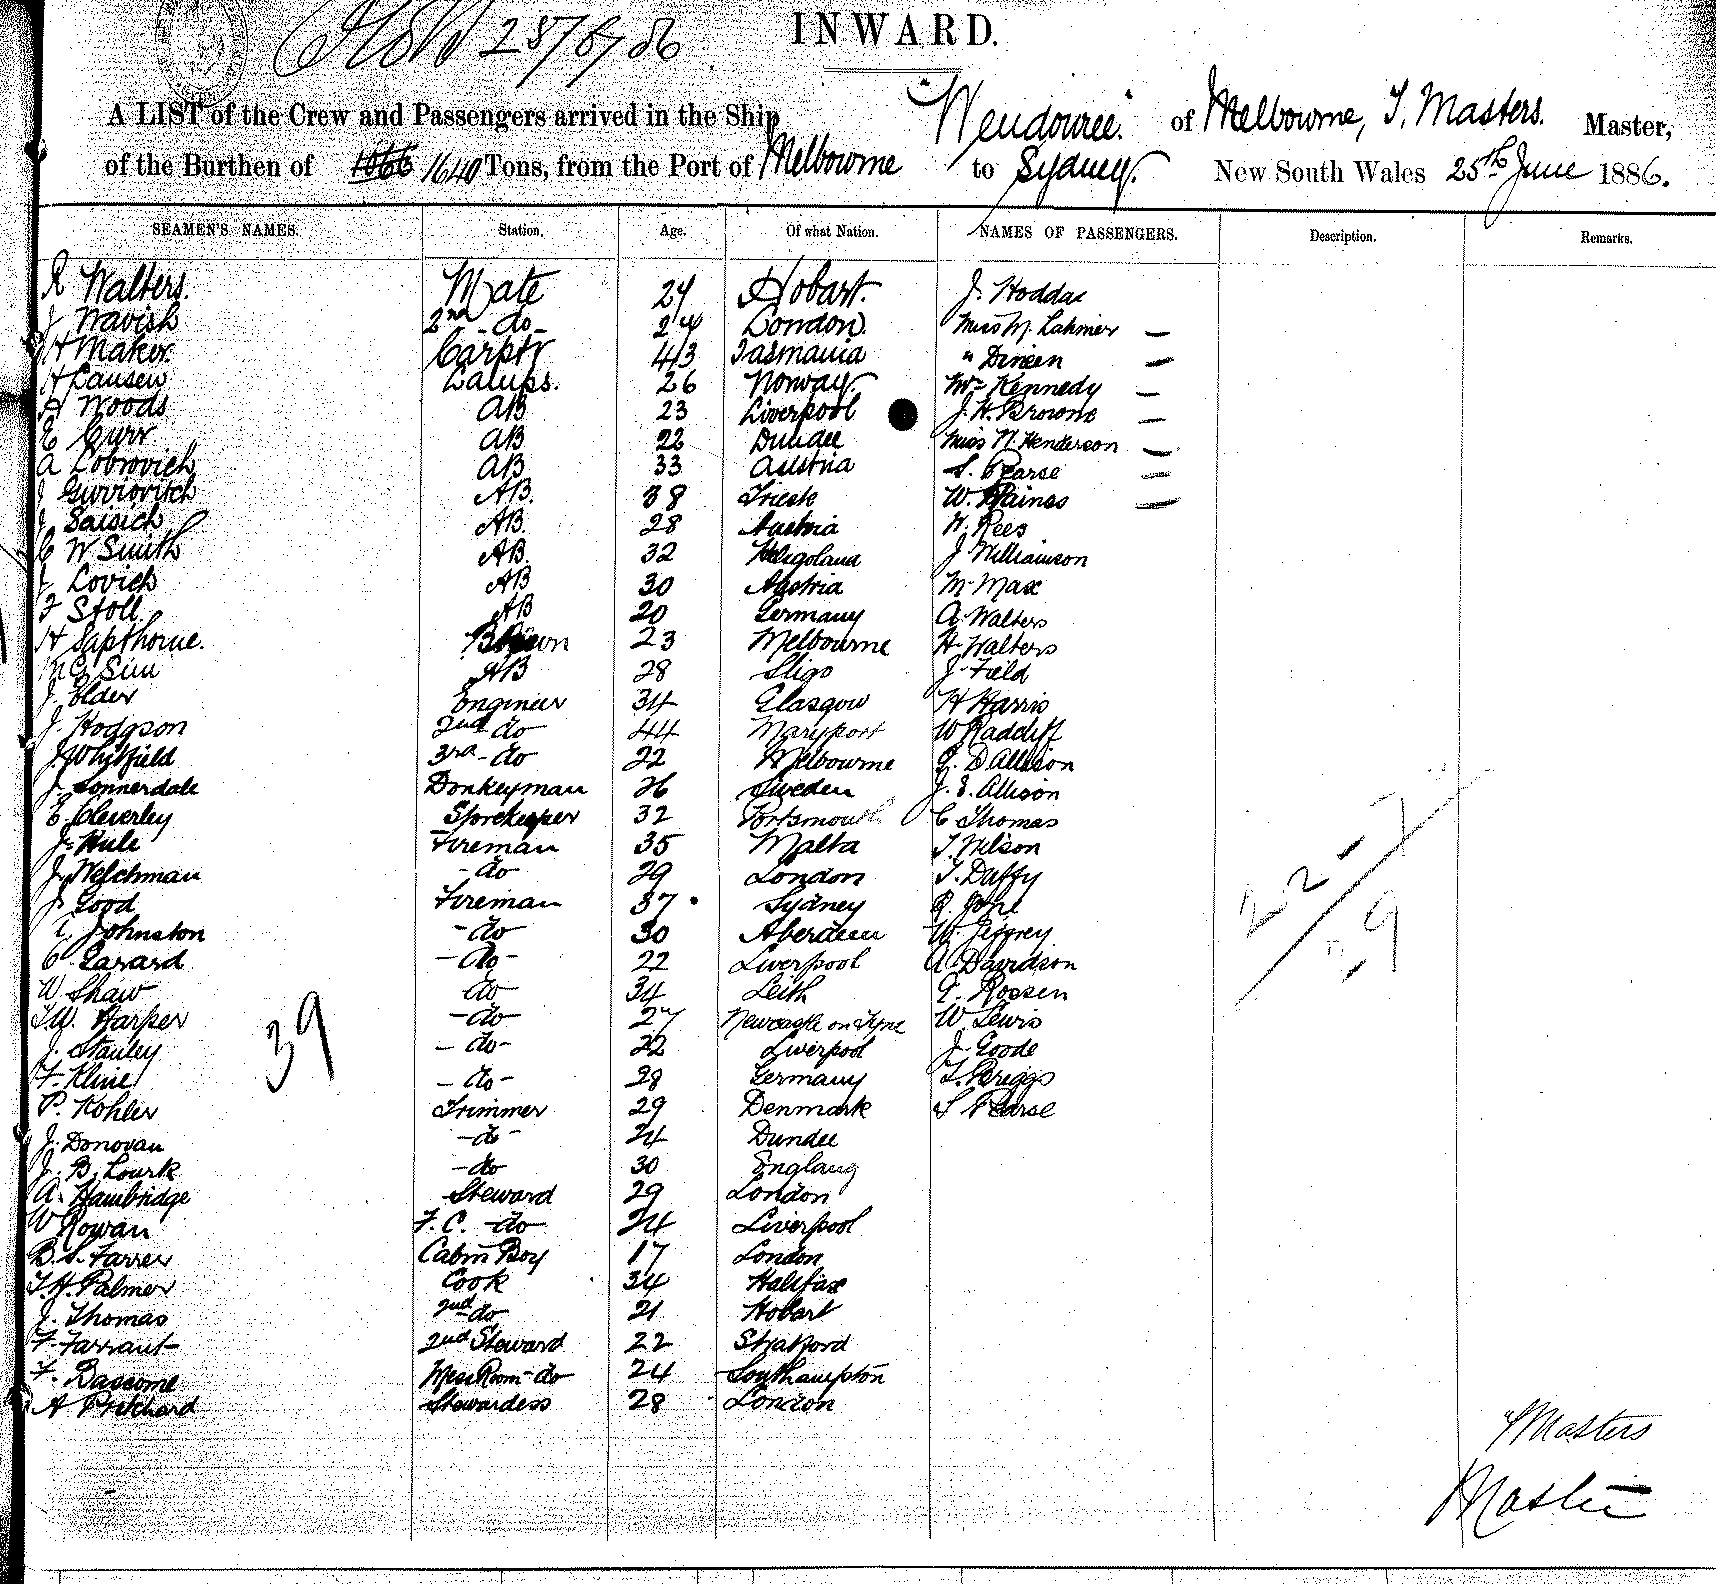 28/6/86
INWARD.
A LIST of the Crew and Passengers arrived in the Ship "Wendouree" of Melbourne, T. Masters. Master,
of the Burthen of 1066 1640 Tons, from the Port of Melbourne to Sydney. New South Wales 25th June 1886.
SEAMEN'S NAMES. Station. Age. Of what Nation. NAMES OF PASSENGERS. Description. Remarks.
R Walters. Mate 24 Hobart. J. Hoddas
J Navish 2nd - do - 24 London. Miss M. Latimer —
H Maker. Carptr 43 Tasmania " Dineen —
H Lausen Lamps. 26 Norway. Mrs Kennedy —
H Woods AB 23 Liverpool J. H. Browne —
E Curr AB 22 Dundee Miss N. Henderson —
A Lobrovich AB 33 Austria S. Pearse —
J Gurriovitch AB. 38 Trieste W. Haines —
J Saisich AB. 28 Austria W. Rees
C W Smith AB. 32 Heligoland J Williamson
J Lovich AB 30 Austria M Max
F Stoll AB 20 Germany A. Walters
H Sapthorne. 23 Melbourne H. Walters
Mc Sim AB 28 Sligo J. Field
J. Elder Engineer 34 Glasgow H Harris
J. Hodgson 2nd do 44 Maryport W Radcliff
J Whitfield 3rd - do 22 Melbourne D Allison
J. Sonnerdale Donkeyman 26 Sweden J. E. Allison
E. Cleverley Storekeeper 32 Portsmouth C Thomas
J. Hule Fireman 35 Malta T. Wilson
J. Welchman - do 29 London T. Daffy
J. Good Fireman 37 Sydney
Johnston - do 30 Aberdeen W. Jeffrey
C. Garard - do - 22 Liverpool A. Davidson
W Shaw do 34 Leith G. Rossen
T. W. Harper - do 27 Newcastle on Tyne W Lewis
J. Stanley - do - 22 Liverpool J. Goode
F. Kline - do - 28 Germany T. Briggs
P. Kohler Trimmer 29 Denmark S Pearse
J. Donovan - do - 24 Dundee
J. B. Lourk - do 30 England
A. Hambridge Steward 29 London
W Rowan F. C. - do 24 Liverpool
B. S. Farrer Cabin Boy 17 London
T. H. Palmer Cook 34 Halifax
J. Thomas 2nd do 21 Hobart
F. Farrant 2nd Steward 22 Stratford
F. Bascome Mess Room - do 24 Southampton
A Pritchard Stewardess 28 London
39
22 - 7
9
T Masters
Master